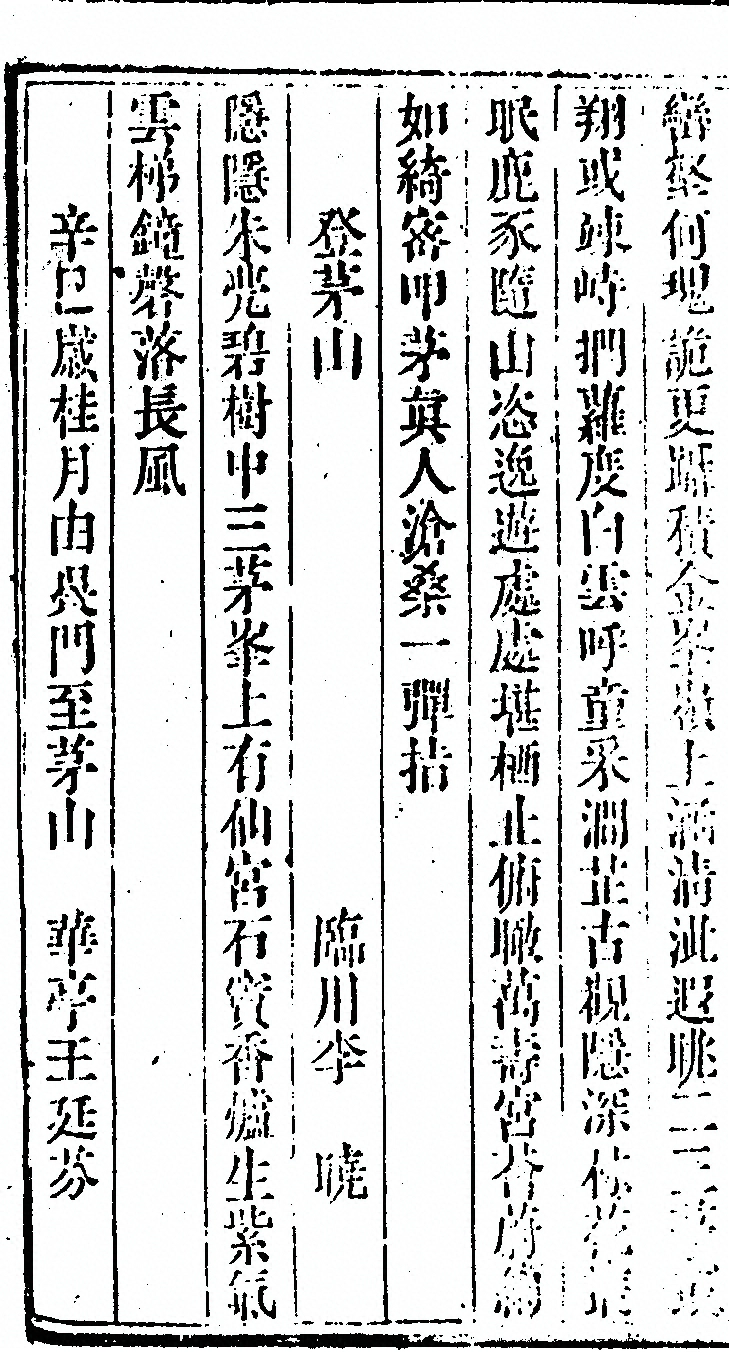 巒壑何瑰詭更躡積金峯嶺上涵清泚遐眺二三茅或
翔或竦峙捫蘿度白雲呼童采澗芷古觀隱深林花
眠鹿豕隨山恣逸遊處處堪栖止俯瞰萬壽宮蒼蔚
如綺密叩茅眞人滄桑一彈指
登茅山 臨川李 曉
隱隱朱甍碧樹中三茅峯上有仙宮石實香爐生紫氣
雲梯鐘磬落長風
辛巳歲桂月由吳門至茅山 華亭王廷芬